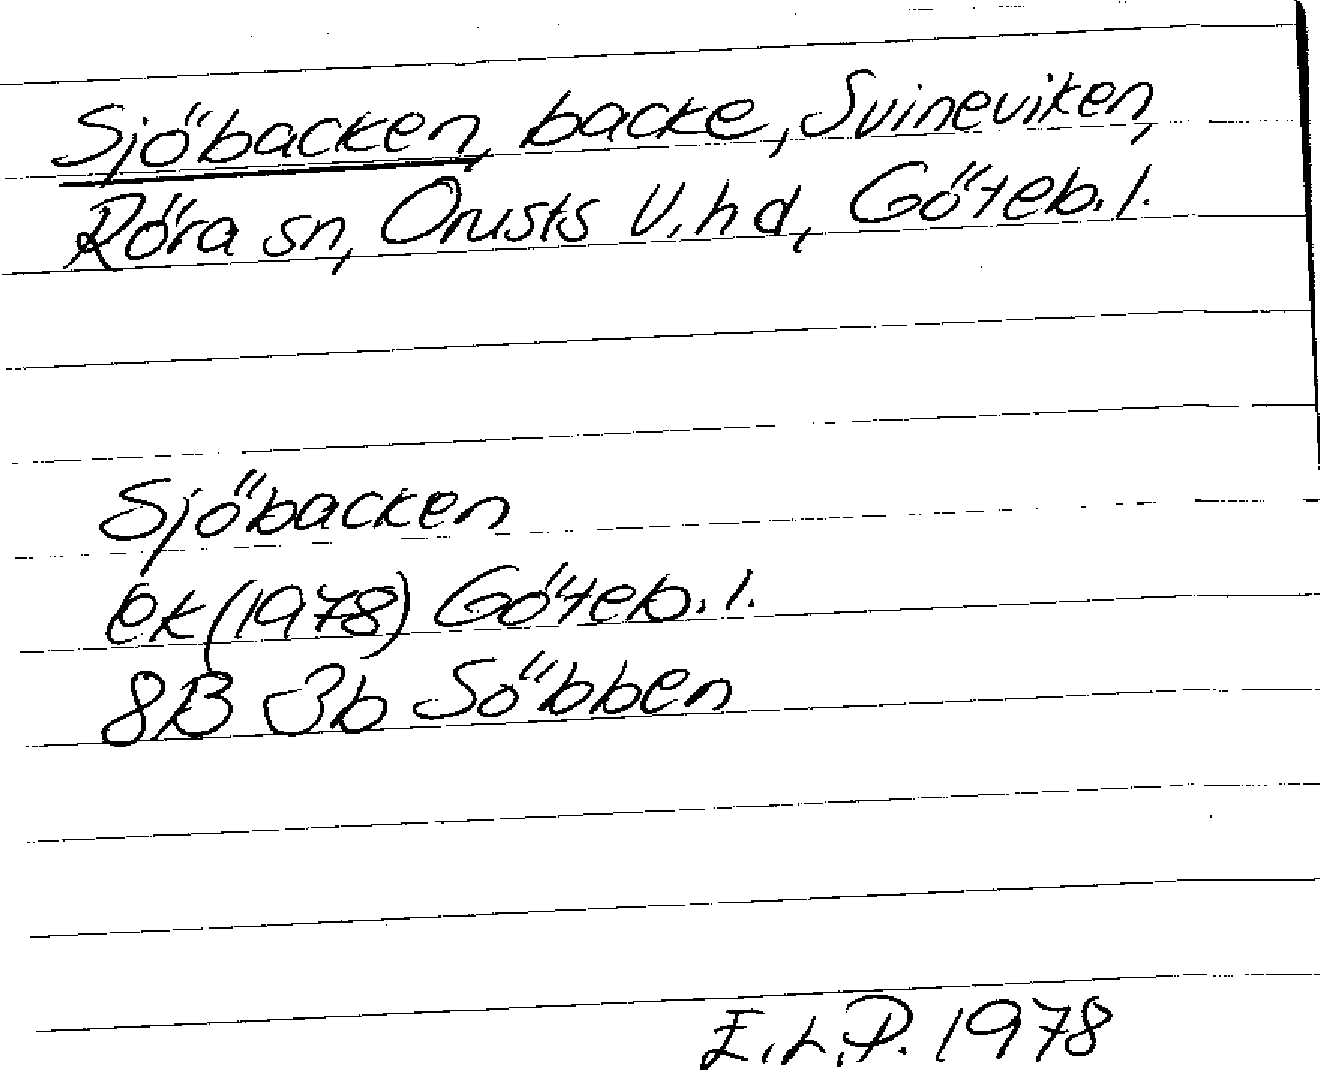 Sjöbacken, backe, Svineviken,
Röra sn, Orusts V. hd, Göteb. l.
Sjöbacken
ek (1978) Göteb. l.
8B 3b Söbben
E.L.P. 1978